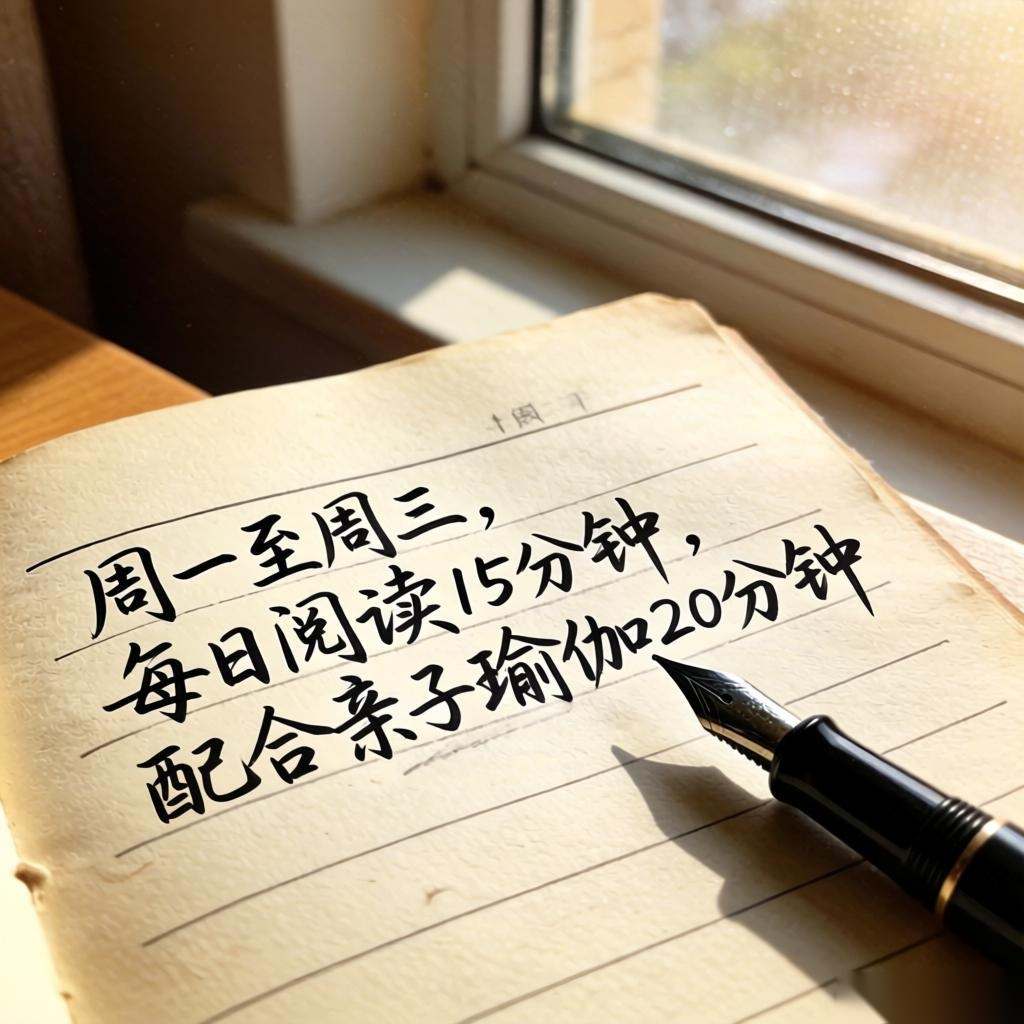 周一至周三，
每日阅读15分钟，
配合亲子瑜伽20分钟